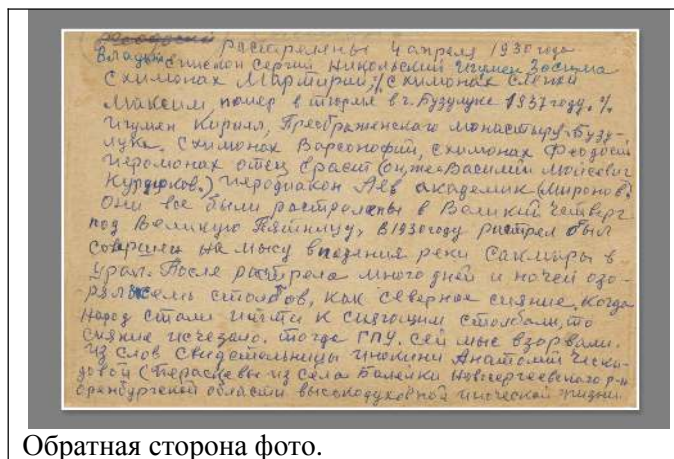 растреляны 4 апреля 1930 года
Владыка епископ Сергий Никольский Игумен Зосима
схимонах Мартирий; // схимонах слепки
Максим, помер в тюрме в г. Бузулуке 1937 году. %
Игумен Кирилл, Преображенского монастыря г. Бузу-
лука. Схимонах Варсонофий, схимонах Феодосий
иеромонах отец Ераст (он, же Василий Мойсеевич
Курдюков.) иеродиакон Лев академик (Миронов.
Они все были растреляны в Великий четверг
под Великую Пятницу, в 1930 году растрел был
совршен на мысу впадения реки Сакмары в
Урал. После растрела много дней и ночей озо-
ряли семь столбов, как северное сияние. Когда
народ стали идти к сияющим столбам, то
сияние исчезало. тогда ГПУ. сей мыс взорвали.
Из слов свидетельницы инокини Анатолии
довой ( из села Балейки Новсергеевского р-н
оренбургской области высокодуховной иноческой жизни
Обратная сторона фото.